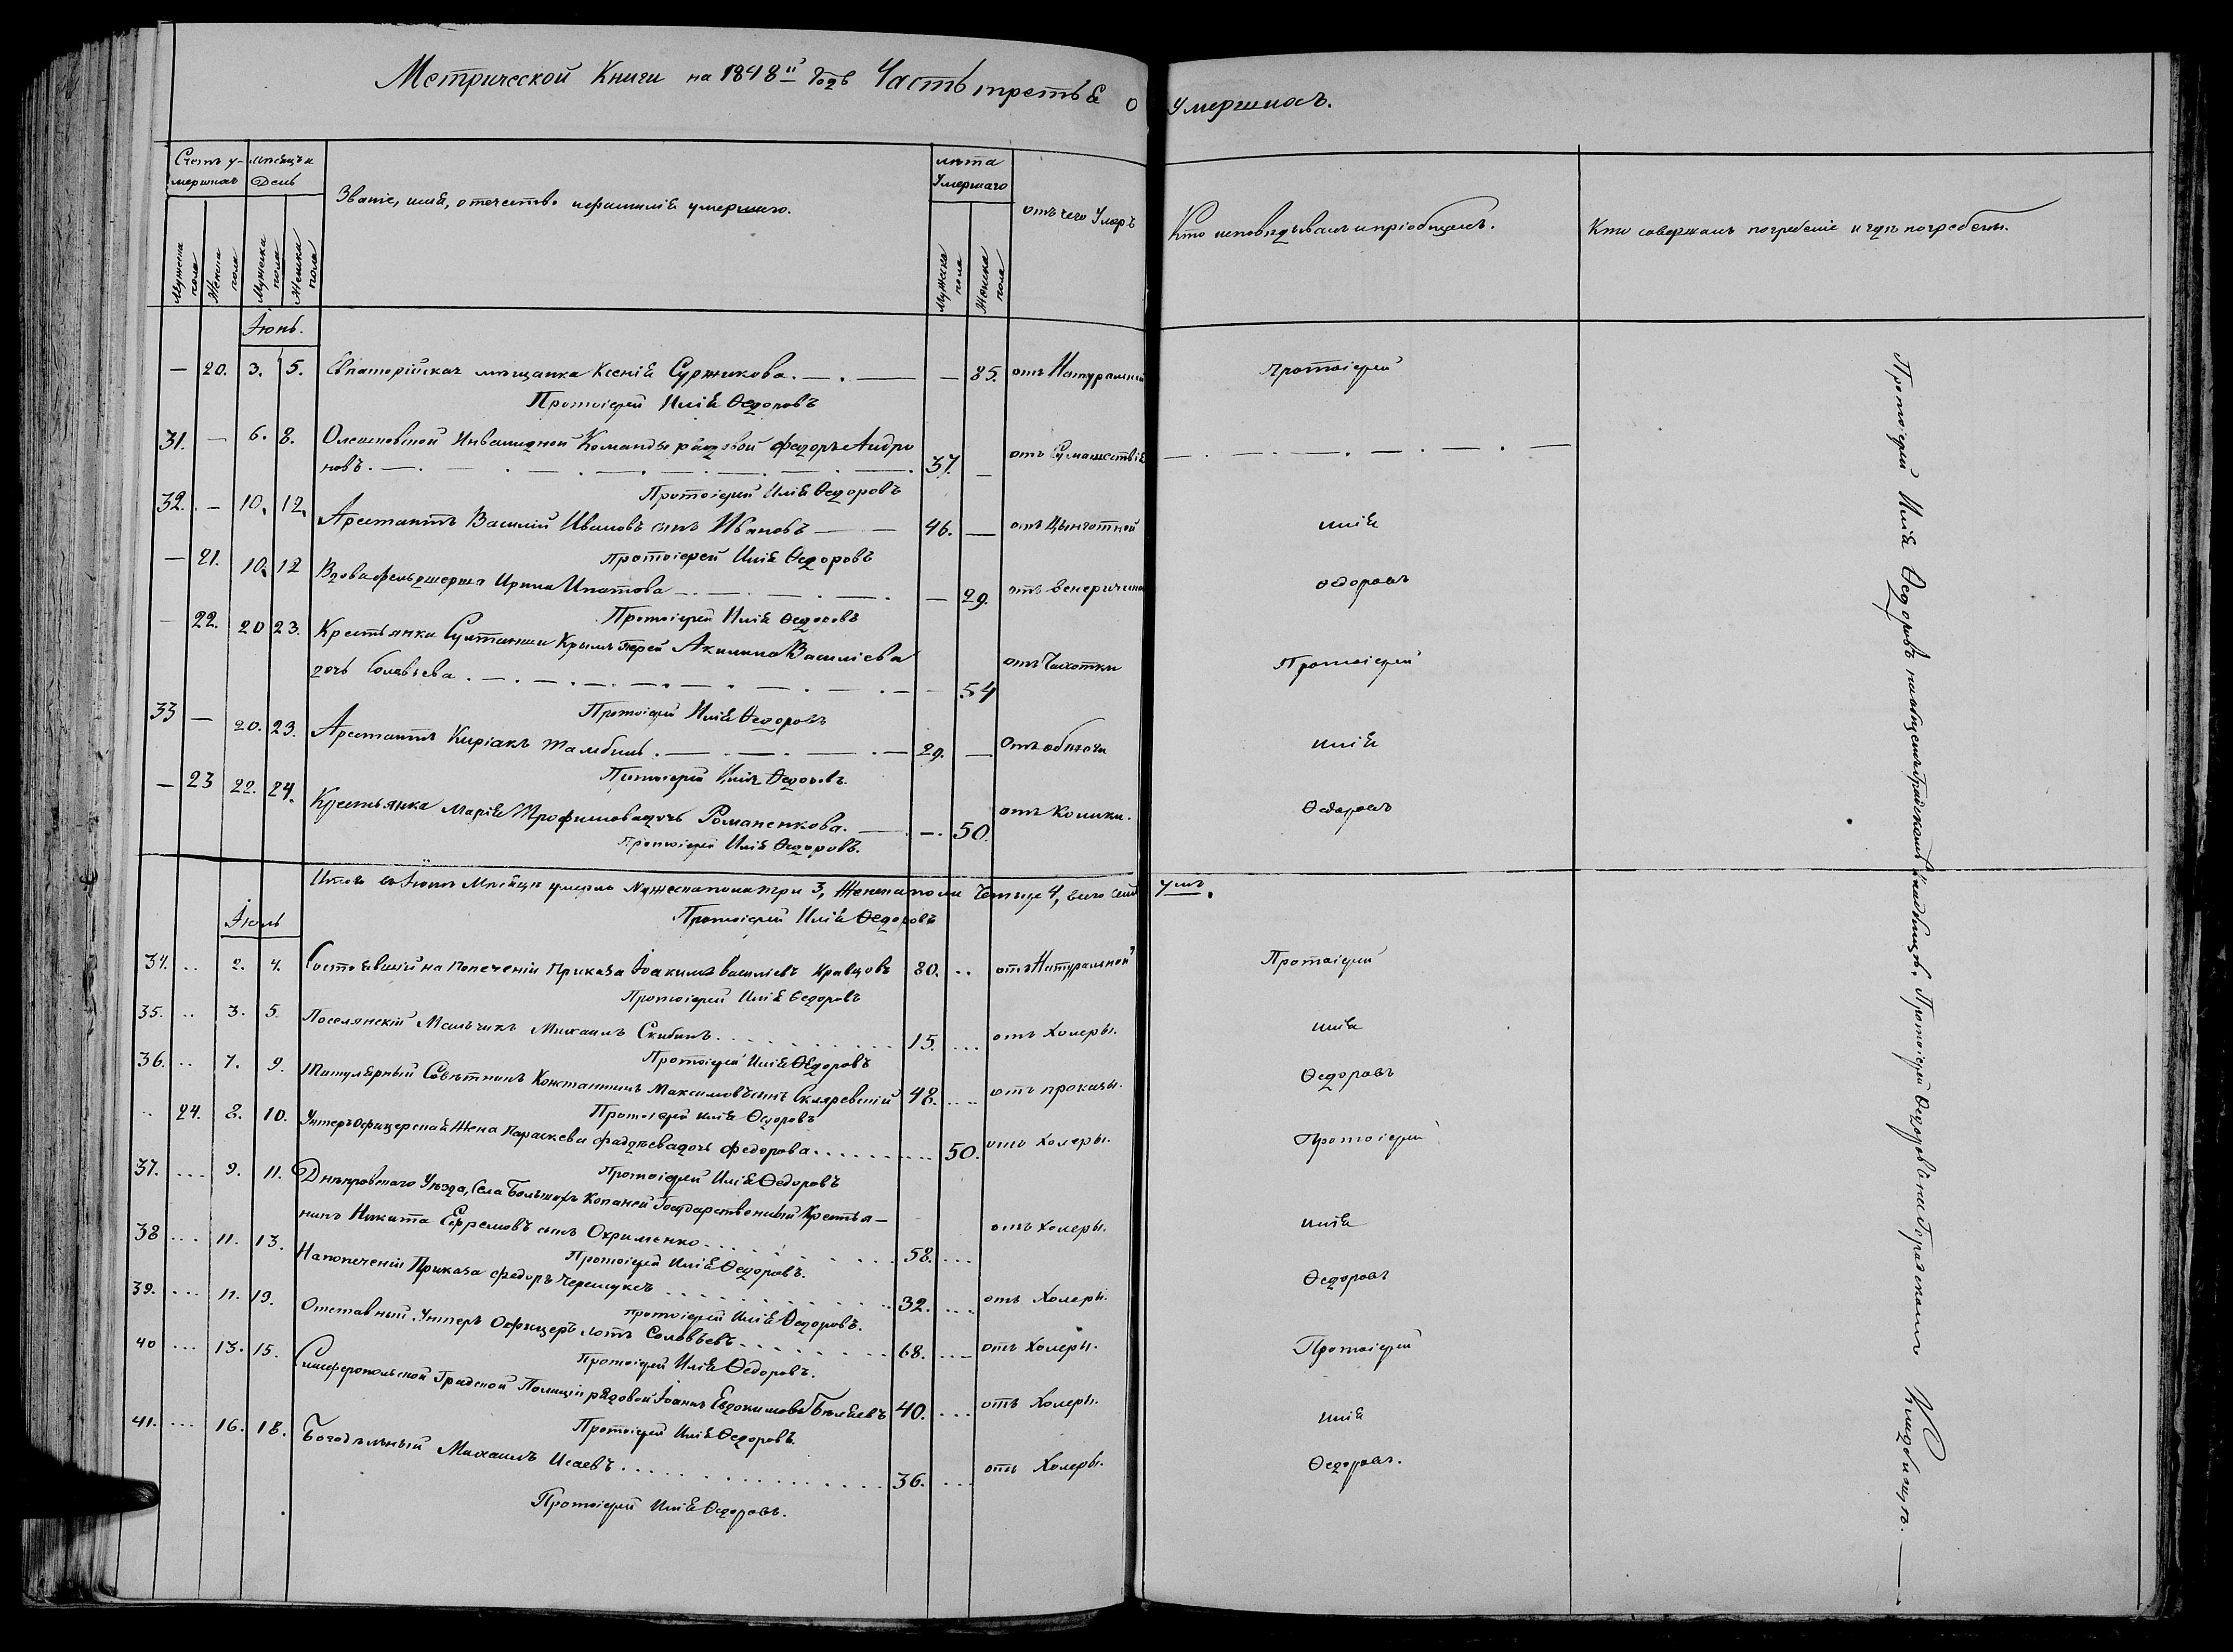 Метрической Книги на 1848й Годъ Часть третья о умершихъ.
Счетъ у-
мершихъ
Мѣсяцъ и
День
Званіе, имя, отечество и фамилія умершаго.
лѣта
Умершаго
отъ чего Умеръ
Кто исповѣдывалъ и пріобщалъ.
Кто совершалъ погребеніе и гдѣ погребены.
Мужеска пола
Женска пола
Мужеска пола
Женска пола
Мужеска пола
Женска пола
Іюнь.
— 20. 3. 5. Евпаторійская мѣщанка Ксенія Суржикова. — 85. отъ Натуральной Протоіерей
Протоіерей Илія Ѳедоровъ
31. — 6. 8. Олешковской Инвалидной Команды рядовой Федоръ Андро
новъ. 37. — отъ Сумашествія
Протоіерей Илія Ѳедоровъ
32. — 10. 12. Арестантъ Василій Ивановъ сынъ Ивановъ 46. — отъ Цынготной Илія
Протоіерей Илія Ѳедоровъ
— 21. 10. 12 Вдова фельдшерша Ирина Ипатова — 29. отъ венерической Ѳедоровъ
Протоіерей Илія Ѳедоровъ
— 22. 20 23. Крестьянка Султанши Крымъ Герей Акилина Василіева
дочь Солвьева — 54 отъ Чахотки Протоіерей
Протоіерей Илія Ѳедоровъ
33 — 20. 23. Арестантъ Киріакъ Тамбинъ. 29. — Отъ обжоги Илія
Протоіерей Илія Ѳедоровъ.
— 23 22. 24. Крестьянка Марія Трофимова дочь Романенкова. — 50. отъ Колики. Ѳедоровъ
Протоіерей Илія Ѳедоровъ.
Итого въ Іюнѣ Мѣсяцѣ умерло Мужеска пола три 3, Женска пола Четыре 4, всего семь душъ.
Протоіерей Илія Ѳедоровъ
Іюль
34. .. 2. 4. Состоявшій на Попеченіи Приказа Іоакимъ Василіевъ Кравцовъ 80. .. отъ Натуральной Протоіерей
Протоіерей Илія Ѳедоровъ
35. .. 3. 5. Поселянскій Мальчикъ Михаилъ Скибинъ 15. ... отъ Холеры. Илія
Протоіерей Илія Ѳедоровъ
36. .. 7. 9. Титулярный Совѣтникъ Константинъ Максимовъ сынъ Скляревскій 48. .... отъ проказы. Ѳедоровъ
Протоіерей Илія Ѳедоровъ
.. 24. 8. 10. Унтеръ Офицерская Жена Параскева Фаддѣева дочь Федорова 50. отъ Холеры. Протоіерей
Протоіерей Илія Ѳедоровъ
37. .... 9. 11. Днѣпровскаго Уѣзда, Села Большихъ Копаней Государственный Крестья-
нинъ Никита Ефремовъ сынъ Охрименко 58. ... отъ холеры. Илія
Протоіерей Илія Ѳедоровъ.
38 ... 11. 13. На попеченіи Приказа Федоръ Черемухъ 32. ... отъ Холеры. Ѳедоровъ
Протоіерей Илія Ѳедоровъ.
39. ... 11. 13. Отставный Унтеръ Офицеръ Лотъ Соловьевъ 68. ... отъ Холеры. Протоіерей
Протоіерей Илія Ѳедоровъ.
40 ... 13. 15. Симферопольской Градской Полиціи рядовой Іоаннъ Евдокимовъ Бѣляевъ 40. ... отъ Холеры. Илія
Протоіерей Илія Ѳедоровъ.
41. ... 16. 18. Богодѣльный Михаилъ Исаевъ 36. ... отъ Холеры. Ѳедоровъ.
Протоіерей Илія Ѳедоровъ.
Протоіерей Илія Ѳедоровъ на общемъ градскомъ кладбищѣ. Протоіерей Ѳедоровъ на Градскомъ Кладбищѣ.